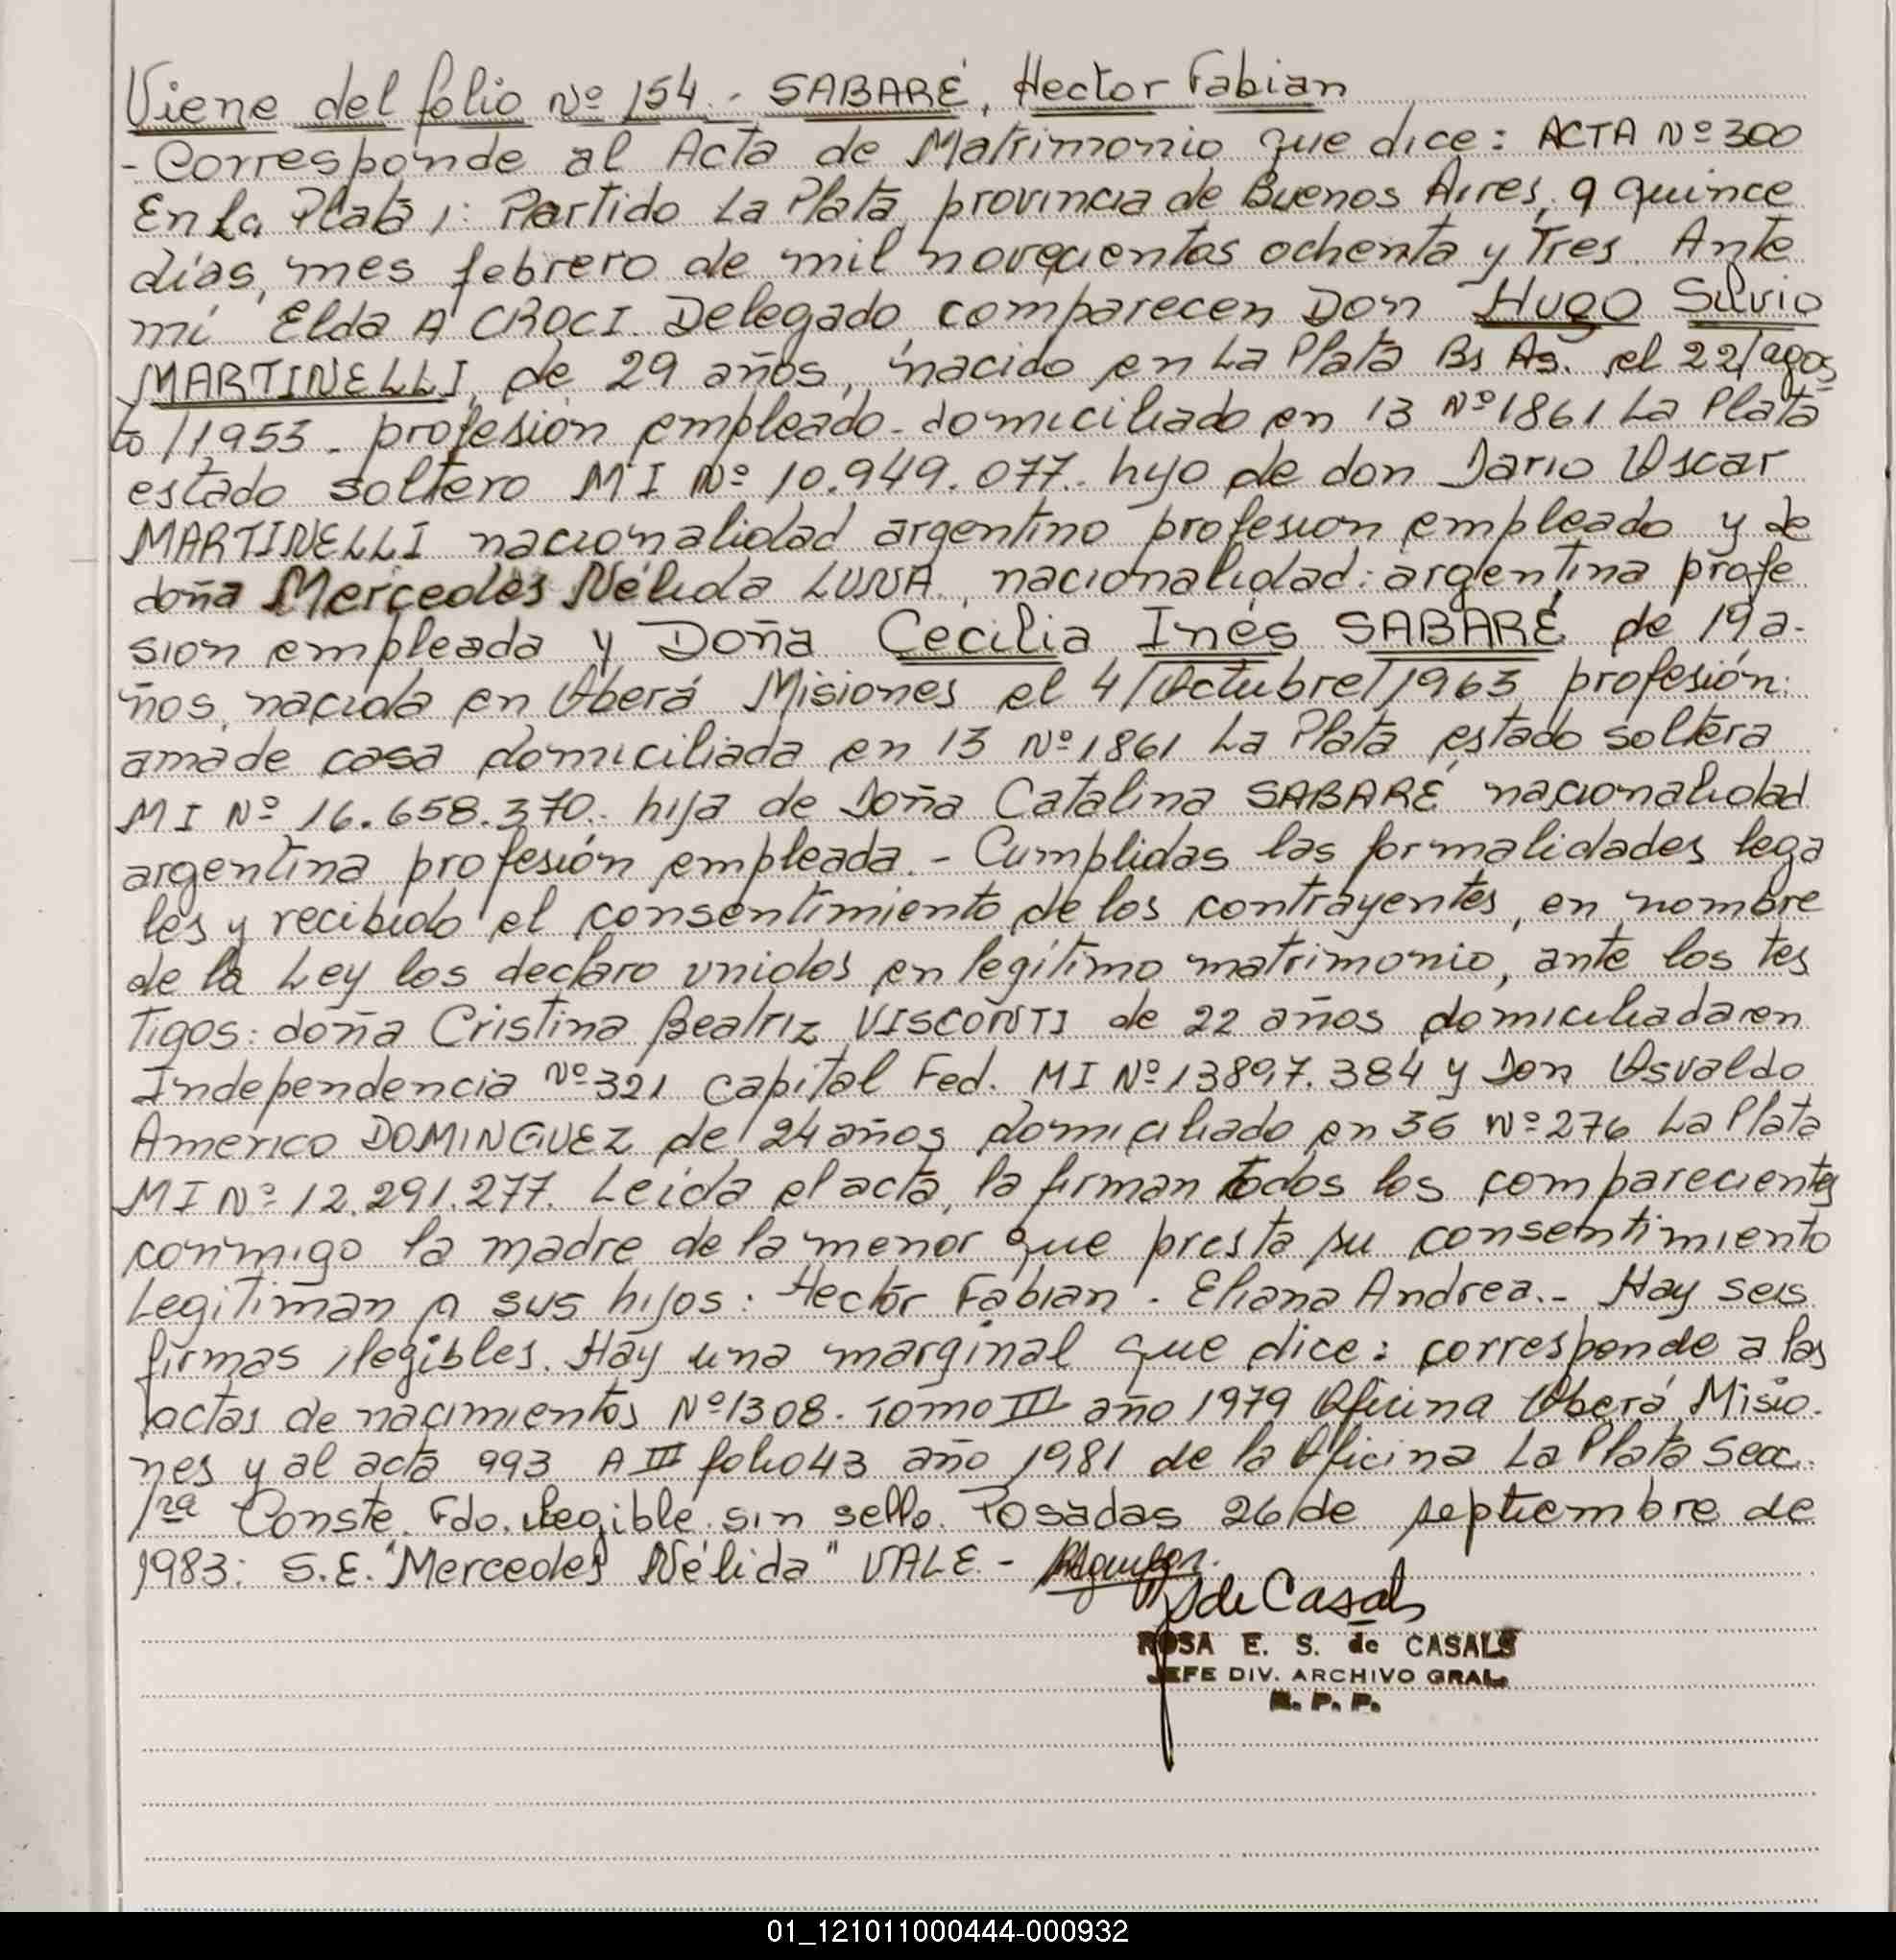 Viene del folio Nº 154.- SABARÉ, Hector Fabian
- Corresponde al Acta de Matrimonio que dice: ACTA Nº 300
En La Plata 1: Partido La Plata provincia de Buenos Aires, a quince
días, mes febrero de mil novecientos ochenta y Tres. Ante
mí Elda A CROCI Delegado, comparecen Don Hugo Silvio
MARTINELLI, de 29 años, nacido en La Plata Bs As. el 22/agos
to/1953 - profesión empleado - domiciliado en 13 Nº 1861 La Plata
estado soltero M I Nº 10.949.077.- hijo de don Dario Oscar
MARTINELLI nacionalidad argentino profesion empleado y de
doña Mercedes Nélida LUNA, nacionalidad: argentina profe
sion empleada y Doña Cecilia Inés SABARÉ de 19 a-
ños, nacida en Oberá Misiones el 4/Octubre/1963 profesión:
ama de casa domiciliada en 13 Nº 1861 La Plata, estado soltera
M I Nº 16.658.370.- hija de Doña Catalina SABARÉ nacionalidad
argentina profesión empleada.- Cumplidas las formalidades lega
les y recibido el consentimiento de los contrayentes, en nombre
de la Ley los declaro unidos en legítimo matrimonio, ante los tes
Tigos: doña Cristina Beatriz VISCONTI de 22 años domiciliada en
Independencia Nº 321 Capital Fed. MI Nº 13897.384 y Don Osvaldo
Americo DOMINGUEZ de 24 años domiciliado en 36 Nº 276 La Plata
MI Nº 12.291.277. Leida el acta, la firman todos los comparecientes
conmigo la madre de la menor que presta su consentimiento
Legitiman a sus hijos: Hector Fabian - Eliana Andrea.- Hay seis
firmas ilegibles. Hay una marginal que dice: corresponde a las
actas de nacimientos Nº 1308. Tomo III año 1979 Oficina Oberá Misio.
nes y al acta 993 A III folio 43 año 1981 de la Oficina La Plata Secc.
1ra Conste. Fdo. ilegible sin sello. Posadas 26 de septiembre de
1983: S.E. "Mercedes Nélida" VALE -
S de Casals
ROSA E. S. de CASALS
JEFE DIV. ARCHIVO GRAL.
R. P. P.
01_121011000444-000932